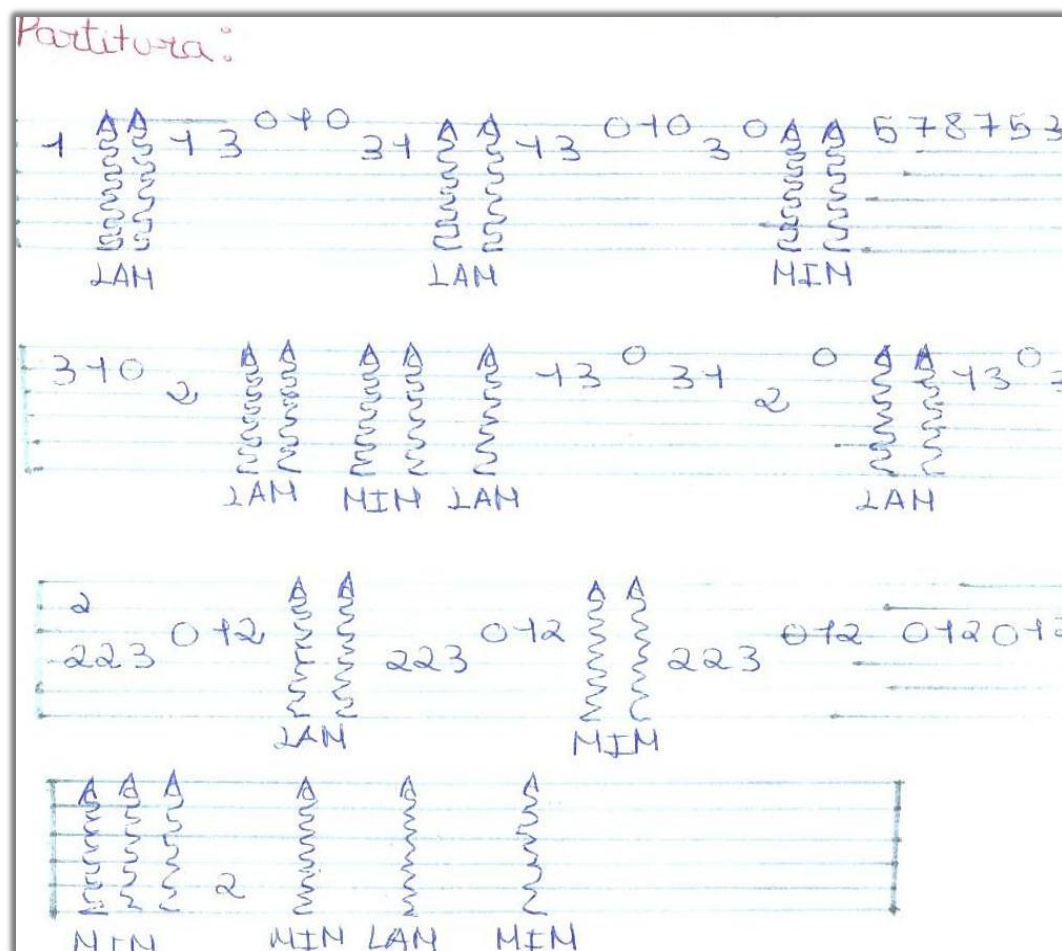 Partitura:
1 13 010 31 13 010 3 0 578753
LAM LAM MIM
310 2 13 0 31 2 0 13 0
LAM MIM LAM LAM
2
223 012 223 012 223 012 01201
LAM MIM
2
MIM MIM LAM MIM